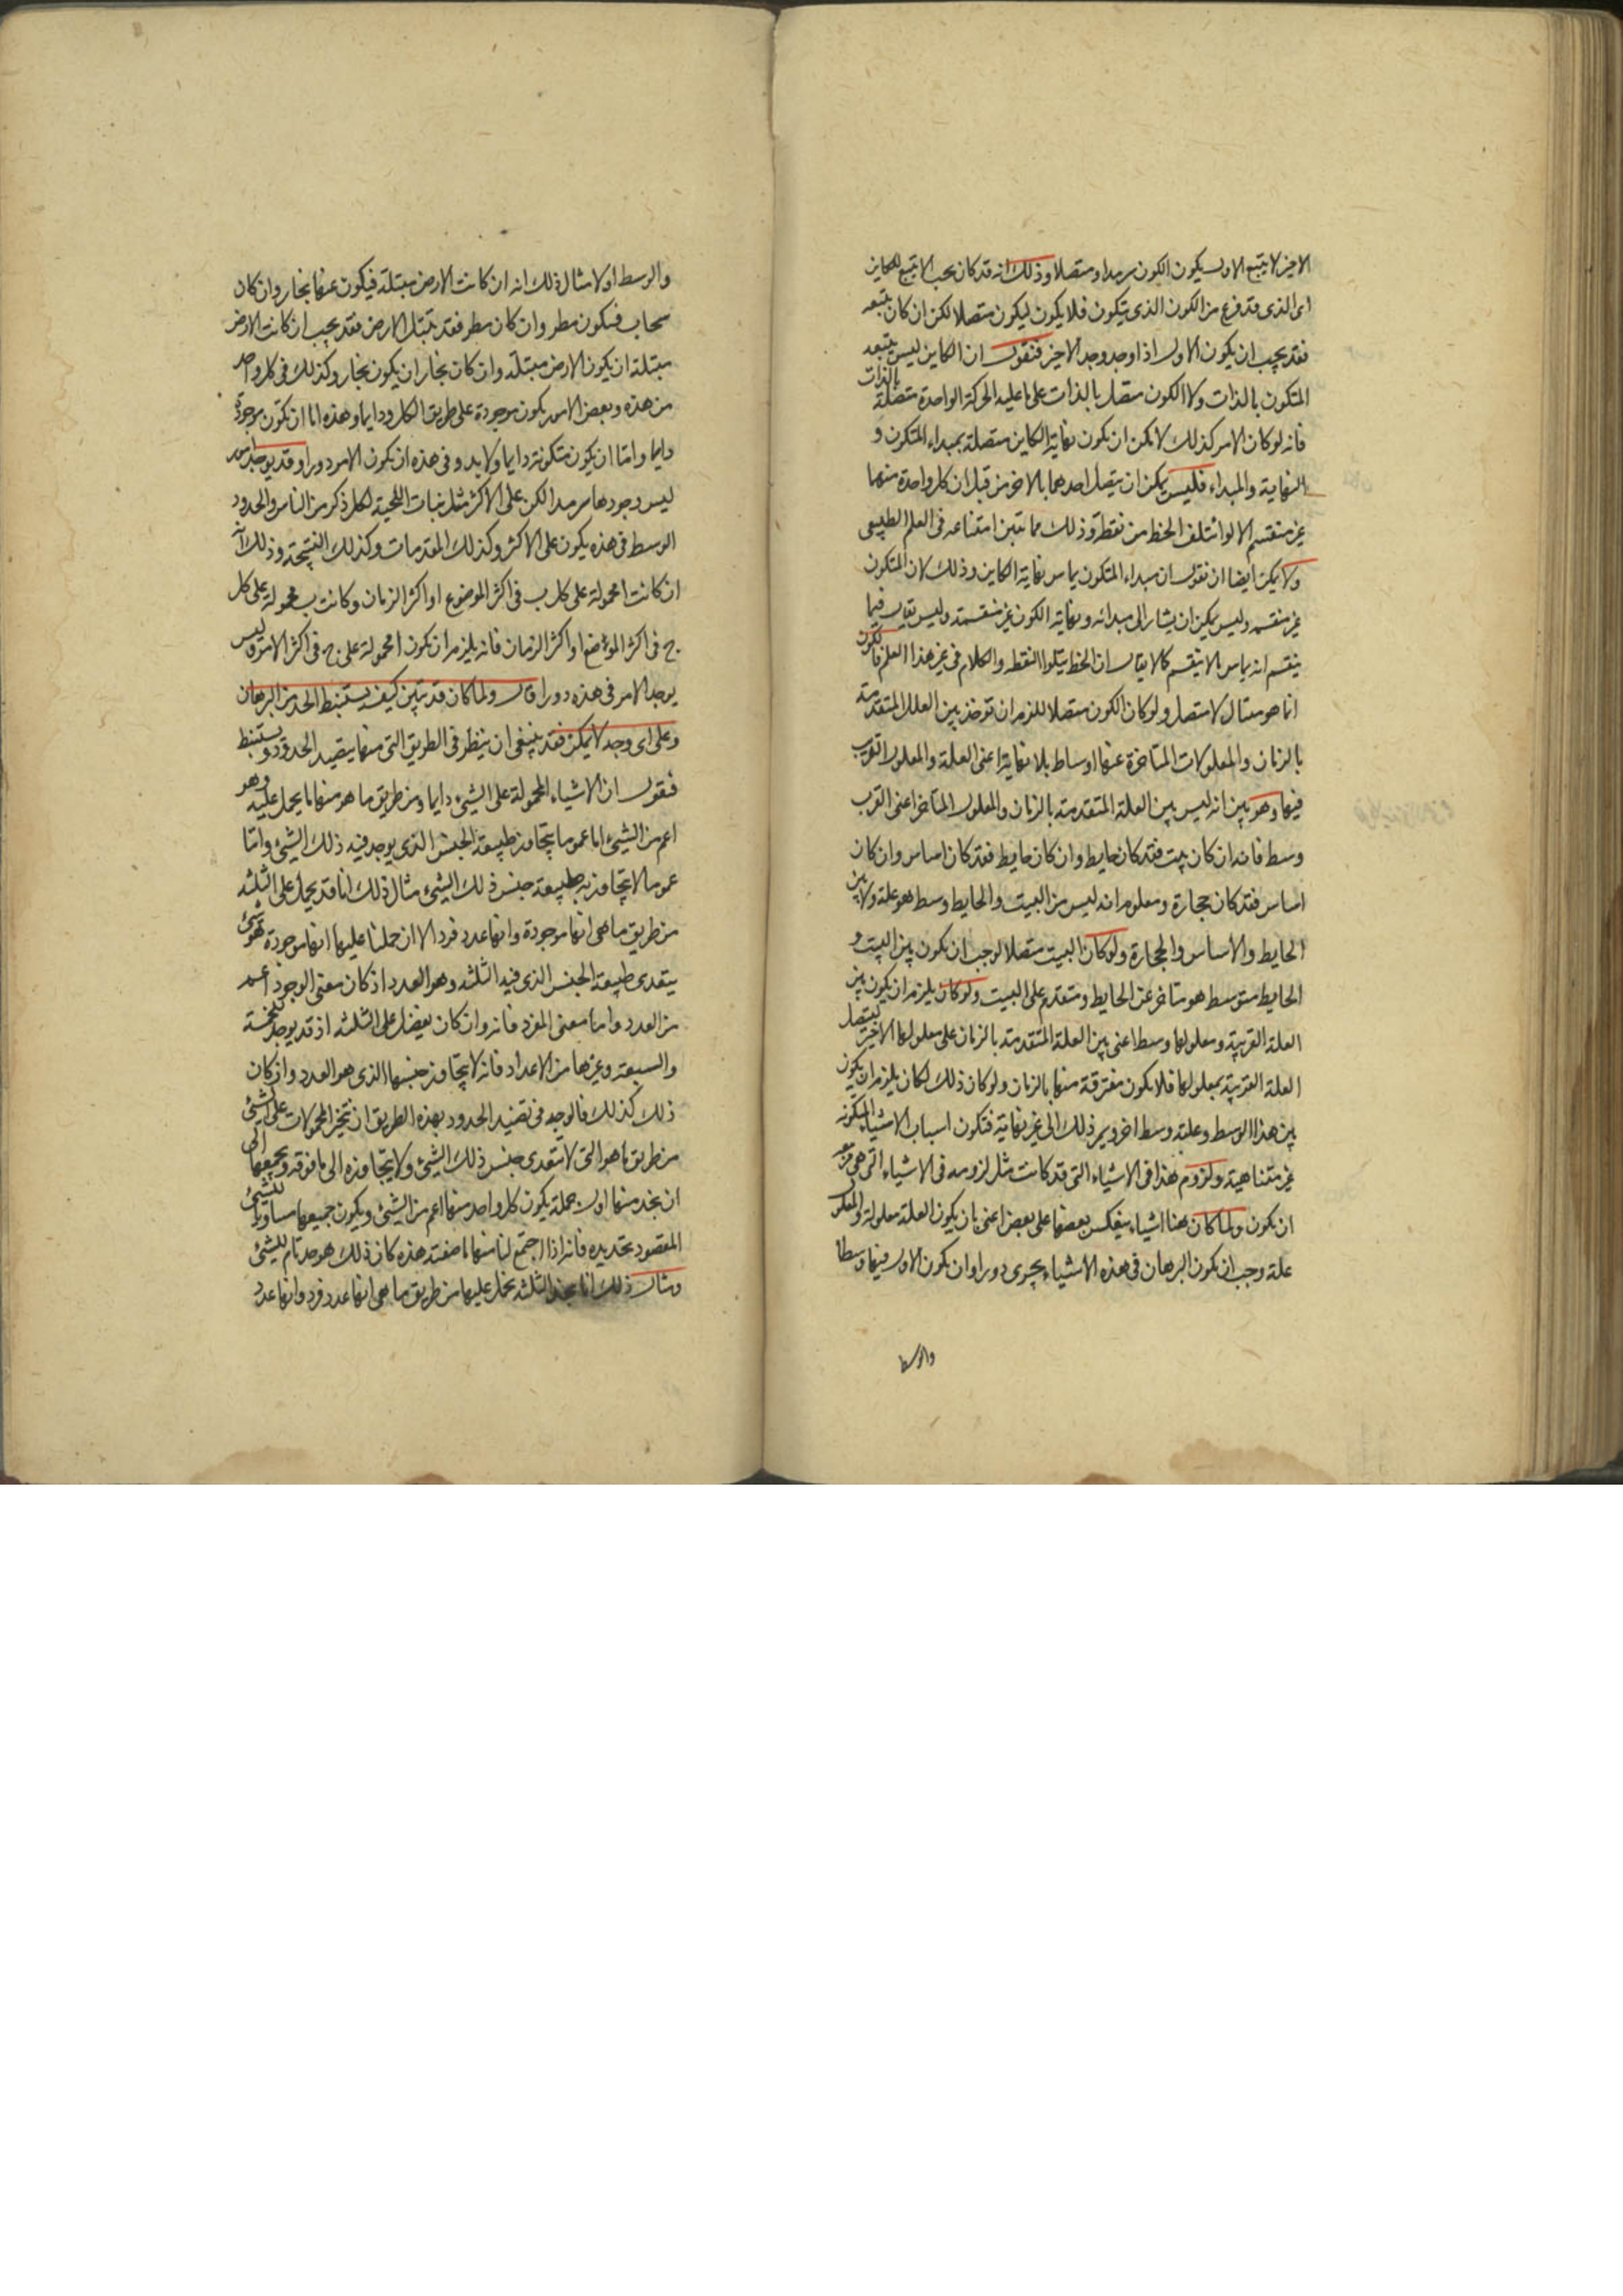 الاخير لا يتبع الاول يكون الكون سرمدا ومتصلا وذلك انه قد كان يجب الا يتبع الكاين
اى الذى قد فرغ من الكون الذى يتكون فلا يكون ليكون متصلا لكن ان كان يتبعه
فقد يجب ان يكون الاول اذا وجد وجد الاخير فنقول ان الكاين ليس يتبعه
المتكون بالذات ولا الكون متصل بالذات على ما عليه الحركة الواحدة متصلة بالذات
فانه لو كان الامر كذلك لا مكن ان يكون نهاية الكاين متصلة بمبداء المتكون و
النهاية والمبداء فليس يمكن ان يتصل احدهما بالاخر من قبل ان كل واحدة منهما
غير منقسم الا لو ائتلف الخط من نقطة وذلك مما تبين امتناعه فى العلم الطبيعى
ولا يمكن ايضا ان نقول ان مبداء المتكون يماس نهاية الكاين وذلك لان المتكون
غير منقسم وليس يمكن ان يشار الى مبدائه ونهاية الكون غير منقسمة وليس يقال فيما
ينقسم انه يماس ما لا ينقسم كما لا يقال ان الخط يتلوا النقطه والكلام فى غير هذا العلم فالكون
انما هو متتال لا متصل ولو كان الكون متصلا للزم ان توخذ بين العلل المتقدمة
بالزمان والمعلولات المتاخرة عنها اوساط بلا نهاية اعنى العلة والمعلول القريب
فيها وهو بين انه ليس بين العلة المتقدمة بالزمان والمعلول المتاخر اعنى القرب
وسط فانه ان كان بيت فقد كان حايط وان كان حايط فقد كان اساس وان كان
اساس فقد كان حجارة ومعلوم انه ليس من البيت والحايط وسط هو علة ولا بين
الحايط والاساس والحجارة ولو كان البيت متصلا لوجب ان يكون بين البيت و
الحايط متوسط هو متاخر عن الحايط ومتقدم على البيت ولو كان يلزم ان يكون بين
العلة القريبة ومعلولها وسط اعنى بين العلة المتقدمة بالزمان على معلولها الاخير ليتصل
العلة القريبة بمعلولها فلا يكون مفترقة منها بالزمان ولو كان ذلك لكان يلزم ان يكون
بين هذا الوسط وعلته وسط اخر ويمر ذلك الى غير نهاية فتكون اسباب الاشياء المتكونه
غير متناهية ولزوم هذا فى الاشياء التى قد كانت مثل لزومه فى الاشياء التى هى مزمعه
ان يكون ولما كان هنا اشياء ينعكس بعضها على بعض اعنى بان يكون العلة معلولة والمعلول
علة وجب ان يكون البرهان فى هذه الاشياء يجرى دورا وان يكون الاول فيها وسطا
والوسط
والوسط اولا مثال ذلك انه ان كانت الارض مبتلة فيكون عنها بخار وان كان
سحاب فيكون مطر وان كان مطر فقد تبتل الارض فقد يجب ان كانت الارض
مبتلة ان يكون الارض مبتلة وان كان بخار ان يكون بخار وكذلك فى كل واحد
من هذه وبعض الامور يكون موجودة على طريق الكل ودايما وهذه اما ان تكون موجودة
دايما واما ان يكون متكونة دايما ولا بد وفى هذه ان يكون الامر دورا وقد يوجد امور
ليس وجودها سرمدا لكن على الاكثر مثل نبات اللحية لكل ذكر من الناس والحدود
الوسط فى هذه يكون على الاكثر وكذلك المقدمات وكذلك النتيجة وذلك انه
ان كانت ا محمولة على كل ب فى اكثر الموضوع او اكثر الزمان وكانت ب محمولة على كل
ج فى اكثر الموضوع او اكثر الزمان فانه يلزم ان تكون ا محمولة على ج فى اكثر الامر وليس
يوجد الامر فى هذه دورا قال ولما كان قد تبين كيف يستنبط الحد من البرهان
وعلى اى وجه لا يمكن فقد ينبغى ان ينظر فى الطريق التى منها يتصيد الحدود ويستنبط
فنقول ان الاشياء المحمولة على الشيئ دايما ومن طريق ما هو منها ما يحمل عليه وهو
اعم من الشيئ اما عموما يتجاوز طبيعة الجنس الذى يوجد فيه ذلك الشيئ واما
عموما لا يتجاوز به طبيعة جنس ذلك الشيئ مثال ذلك انا قد يحمل على الثلثه
من طريق ما هى انها موجودة وانها عدد فرد الا ان حملنا عليها انها موجودة فهو شيئ
يتعدى طبيعة الجنس الذى فيه الثلثه وهو العدد اذ كان معنى الوجود اعم
من العدد واما معنى الفرد فانه وان كان يفضل على الثلثه اذ قد يوجد للخمسة
والسبعة وغيرها من الاعداد فانه لا يتجاوز جنسها الذى هو العدد واذ كان
ذلك كذلك فالوجه فى تصيد الحدود بهذه الطريق ان نتخير المحمولات على الشيئ
من طريق ما هو التى لا تتعدى جنس ذلك الشيئ ولا يتجاوزه الى ما فوقه ويجمعها الى
ان نجد منها اول جملة يكون كل واحد منها اعم من الشيئ ويكون جميعها مساويا للشيئ
المقصود تحديده فانه اذا اجتمع لنا منها ما صفته هذه كان ذلك هو حد تام للشيئ
ومثال ذلك انا نجد الثلثه يحمل عليها من طريق ما هى انها عدد فرد وانها عدد